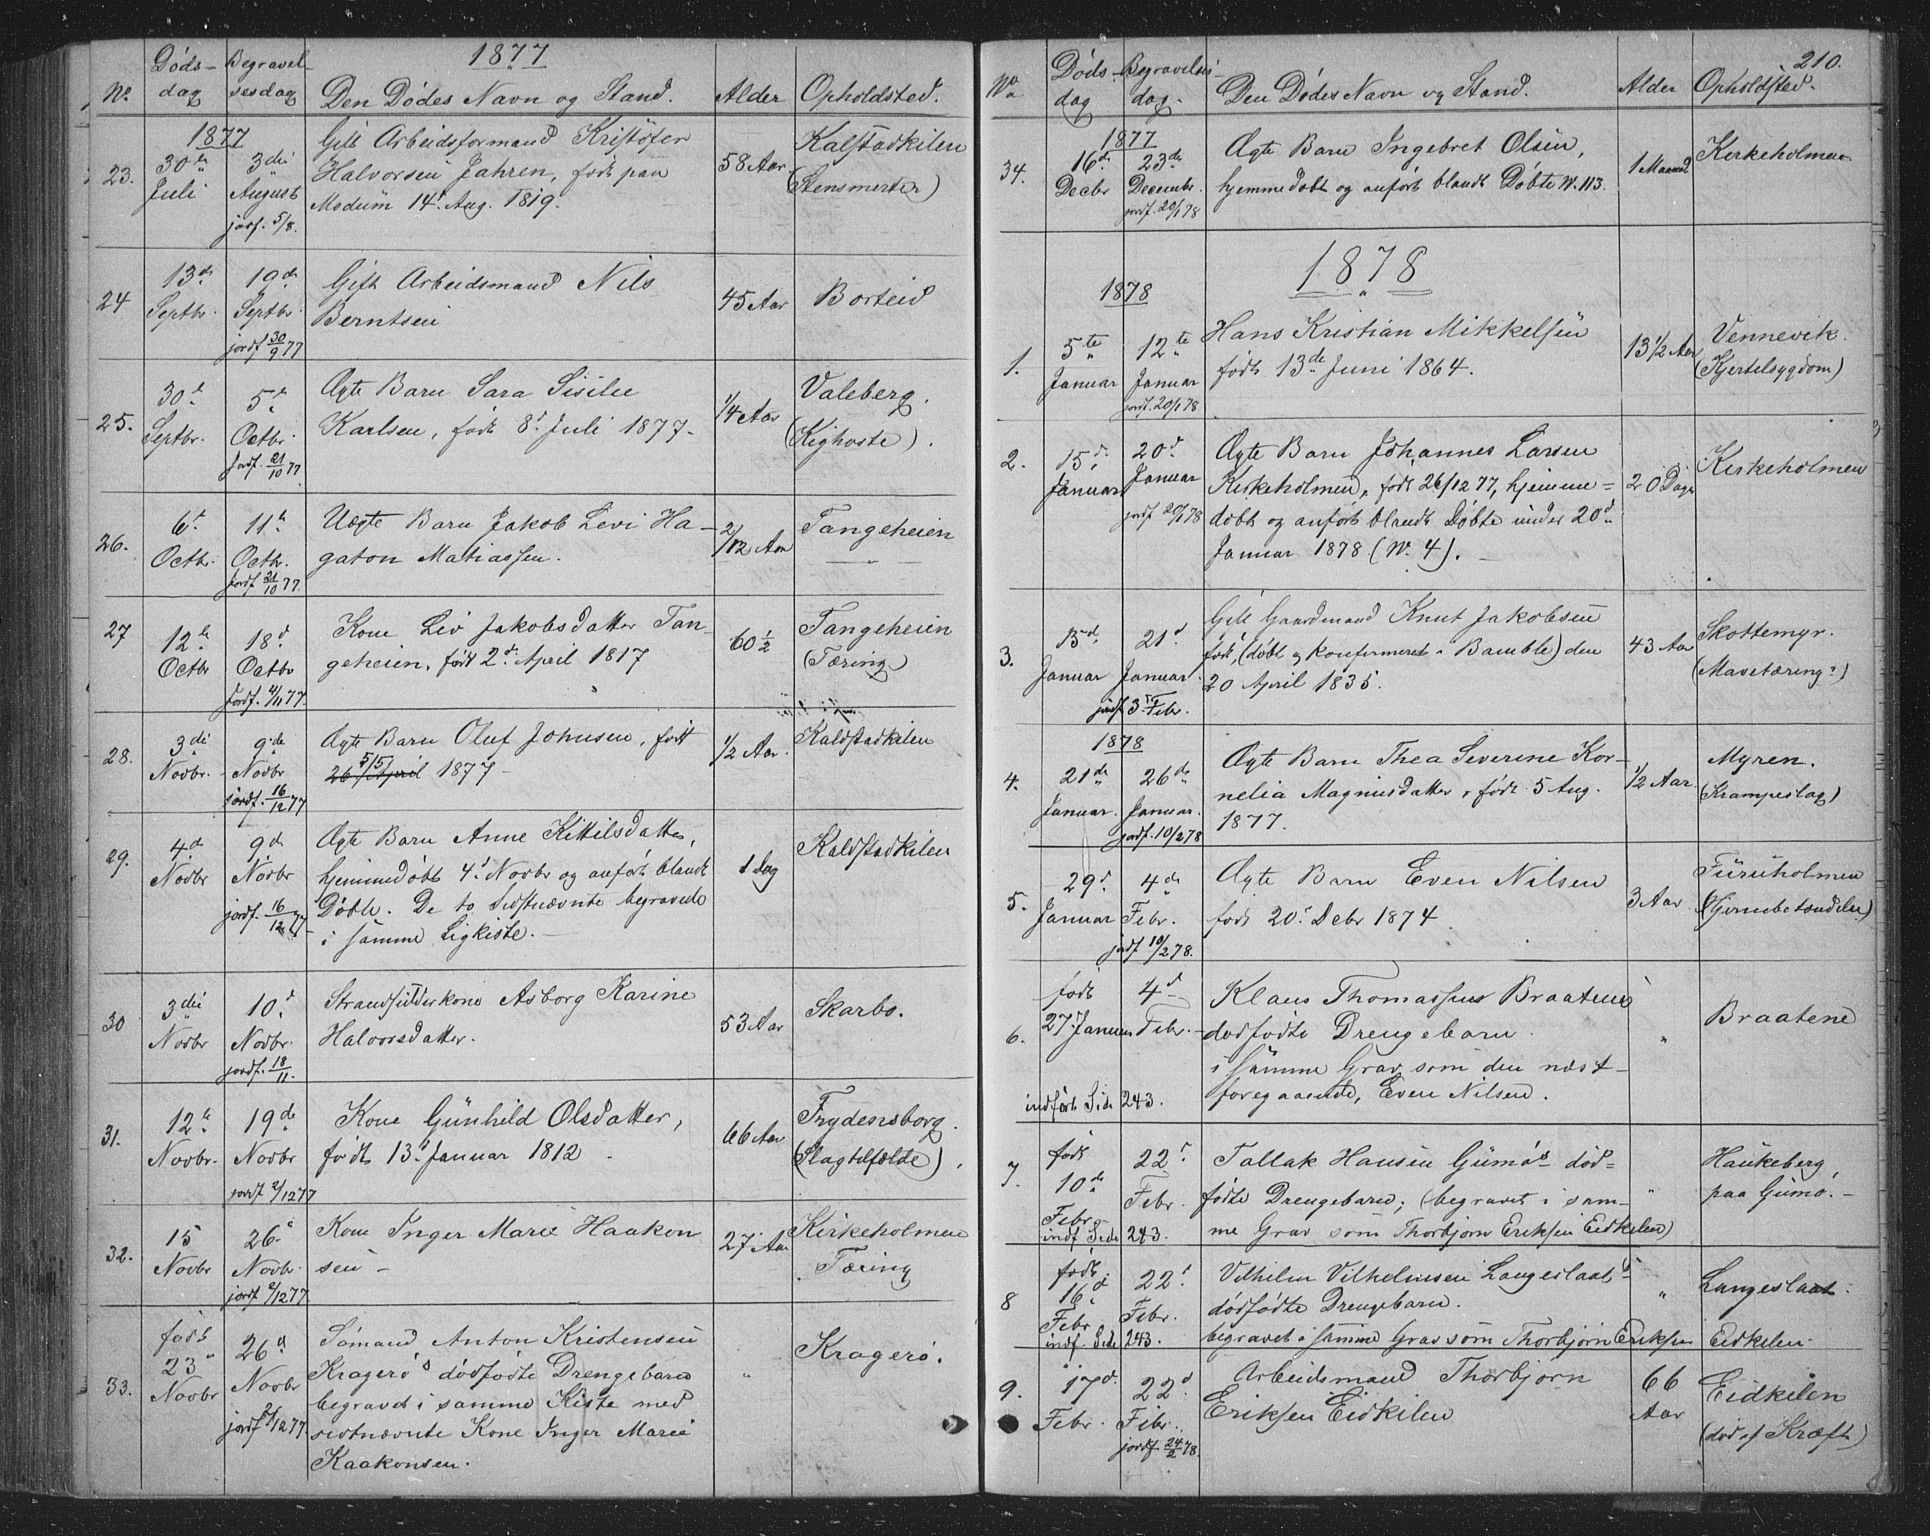 1877
No Døds-dag Begravelsesdag Den Dødes Navn og Stand. Alder Opholdsted.
1877
23. 30te Juli 3die August jordf. 5/8.
Gift Arbeidsformand Kristofer
Halvorsen Jahren, født paa
Modum 14d Aug. 1819.
58 Aar
Kalstadkilen
24 13de Septbr. 19de Septbr. jordf 30/9 77
Gift Arbeidsmand Nils
Berntsen
45 Aar
Borteid
25. 30d Septbr. 5d Octbr. Jordf. 21/10 77.
Ægte Barn Sara Sisilie
Karlsen, født 8d Juli 1877.
1/4 Aar
Valeberg.
(Kighoste).
26. 6d Octbr. 11te Octbr. Jordf 21/10 77.
Uægte Barn Jakob Levi Ha-
gaton Matiassen.
2/12 Aar
Tangeheien
27 12te Octbr 18d Octbr Jordf. 4/11 77.
Kone Liv Jakobsdatter Tan-
geheien, født 2d April 1817
60 1/2
Tangeheien
(Tæring)
28. 3die Novbr. 9de Novbr jordf. 16/12 77
Ægte Barn Oluf Johnsen, født
26 April 5/5 1877
1/2 Aar
Kaldstadkilen
29. 4d Novbr 9d Novbr jordf 16/12 77.
Ægte Barn Anne Kittilsdatter,
hjemmedøbt 4d Novbr og anført blandt
Døbte. De to sidstnævnte begravede
i samme Ligkiste.
1 Dag
Kaldstadkilen
30 3die Novbr 10d Novbr. jordf. 18/11.
Strandsidderkone Asborg Karine
Halvorsdatter.
53 Aar
Skarbo.
31. 12te Novbr. 19de Novbr jordf 2/12 77
Kone Gunhild Olsdatter,
født 13d Januar 1812
66 Aar
Frydensborg.
(Slagtilfælde).
32. 15 Novbr 26d Novbr. jordf 2/12 77
Kone Inger Marie Haakon
sen
27 Aar
Kirkeholmen
Tæring
33. født 23 Novbr 26d Novbr jordf 2/12 77.
Sømand Anton Kristensen
Kragerø's dødfødte Drengebarn
begravet i samme Kiste med
sidstnævnte Kone Inger Marie
Haakonsen.
"
Kragerø.
210.
No Døds-dag Begravelses-dag. Den Dødes Navn og Stand. Alder Opholdsted.
1877
34. 16de Decbr 23de Decembr. jordf. 20/1 78
Ægte Barn Ingebret Olsen,
hjemmedøbt og anført blandt Døbte No. 113.
1 Maaned
Kirkeholmen
1878
1878
1. 5te Januar 12te Januar jordf. 20/1 78
Hans Kristian Mikkelsen
født 13de Juni 1864.
13 1/2 Aar
Vennevik.
(Kjertelsygdom)
2. 15d Januar 20d Januar jordf 20/1 78
Ægte Barn Johannes Larsen
Kirkeholmen, født 26/12 77, hjemme=
døbt og anført blandt Døbte under 20d
Januar 1878 (No. 4).
20 Dage
Kirkeholmen
3. 15d Januar 21d Januar jordf 3d Febr.
Gift Gaardmand Knut Jakobsen
født, (døbt og konfirmeret i Bamble) den
20 April 1835.
43 Aar
Skottemyr.
(Mavetæring?)
1878
4. 21de Januar. 26de Januar. jordf. 10/2 78
Ægte Barn Thea Severine Kor-
nelia Magnusdatter, født 5 Aug.
1877.
1/2 Aar.
Myren.
(Krampeslag)
5. 29d Januar 4de Febr. jordf 10/2 78.
Ægte Barn Even Nilsen
født 20d Decbr 1874.
3 Aar
Furuholmen
(Hjernebetændelse)
6. født 27d Januar 4d Febr.
Klaus Thomassens Braatene
dødfødte Drengebarn.
i samme Grav som den næst-
foregaaende, Even Nilsen.
indført Side 243.
"
Braatene
7. født 10de Febr. 22d Febr.
Tallak Hansen Gumø's død=
fødte Drengebarn; (begravet i sam-
me Grav som Thorbjørn Eriksen Eidkilen)
indf Side 243.
"
Haukeberg,
paa Gumø.
8 født 16d Febr 22d Febr.
Vilhelm Vilhelmsen Langeslaats
dødfødte Drengebarn.
begravet i samme Grav som Thorbjørn Eriksen Eidkilen.
indf. Side 243.
"
Langeslaat.
9. 17d. Febr. 22d Febr. jordf 24/2 78.
Arbeidsmand Thorbjørn
Eriksen Eidkilen
66
Aar
Eidkilen
(død af Kræft)